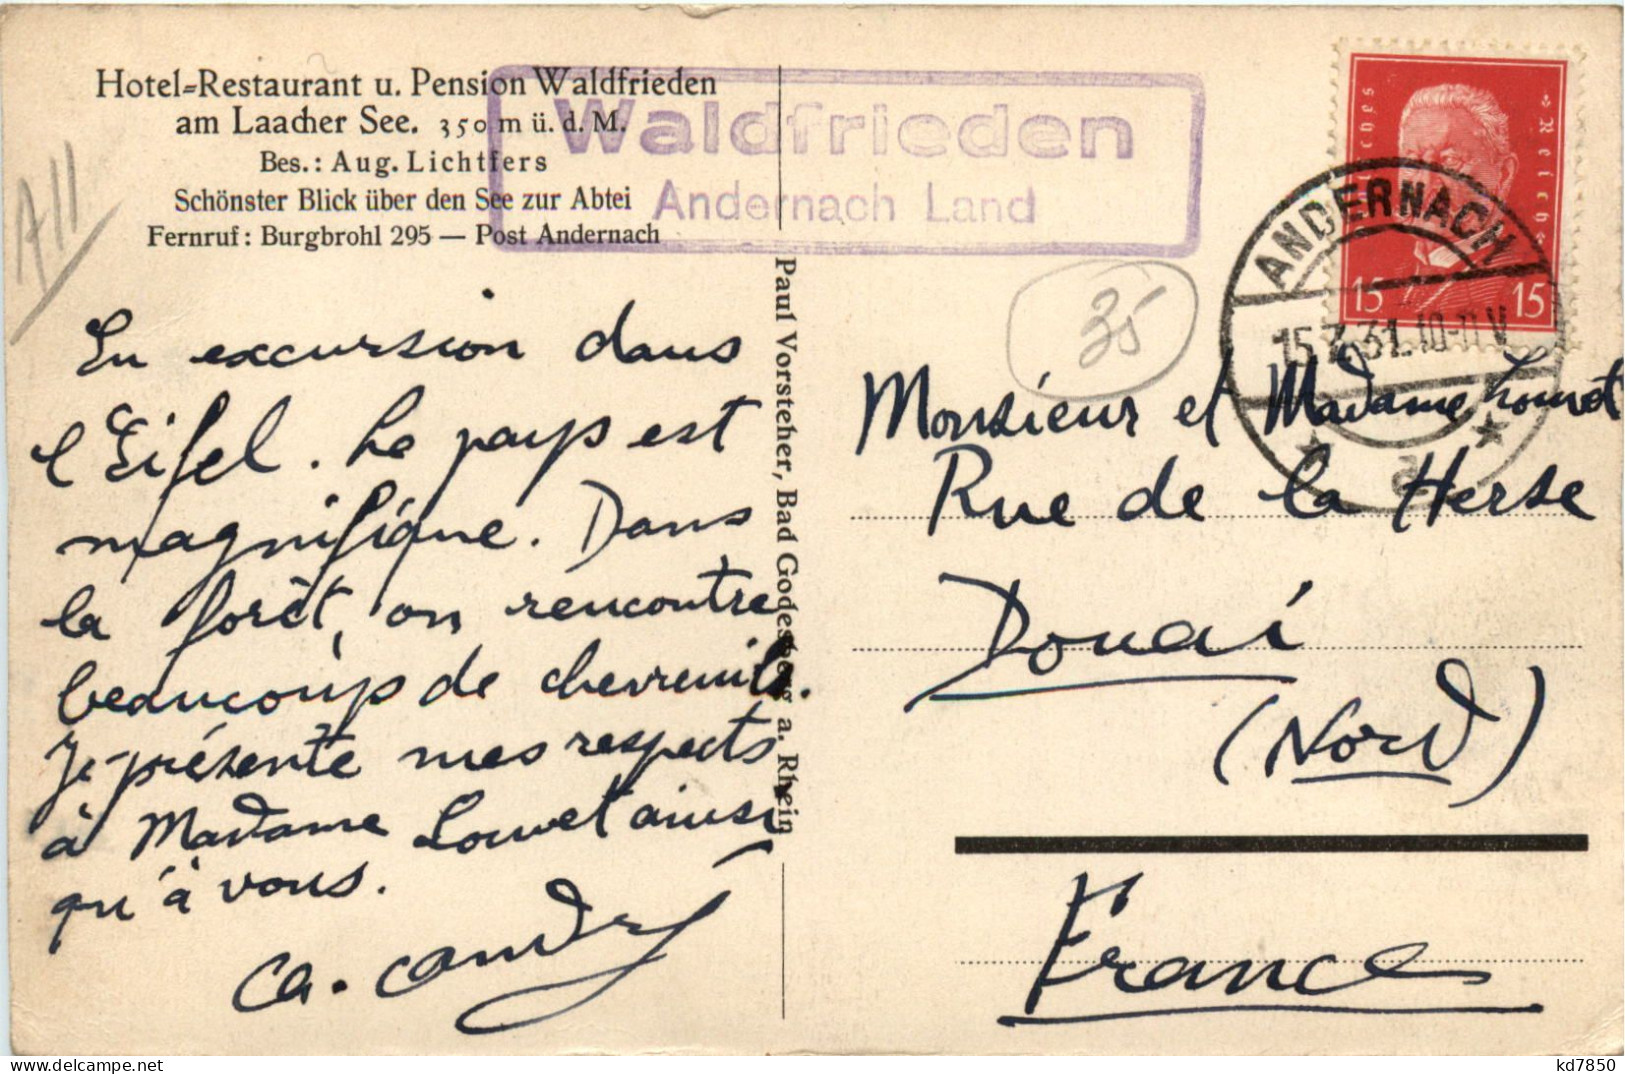 Hotel-Restaurant u. Pension Waldfrieden
am Laacher See. 350 m ü. d. M.
Bes.: Aug. Lichtfers
Schönster Blick über den See zur Abtei
Fernruf: Burgbrohl 295 — Post Andernach
Waldfrieden
Andernach Land
A11
35
Reich
15 15
ANDERNACH
15.7.31.10-11V
a
En excursion dans
l'Eifel. Le pays est
magnifique. Dans
la forêt, on rencontre
beaucoup de chevreuils.
Je présente mes respects
à Madame Louvet ainsi
qu'à vous.
Paul Vorsteher, Bad Godesberg a. Rhein
Monsieur et Madame Louvet
Rue de la Herse
Douai
(Nord)
France
kd7850